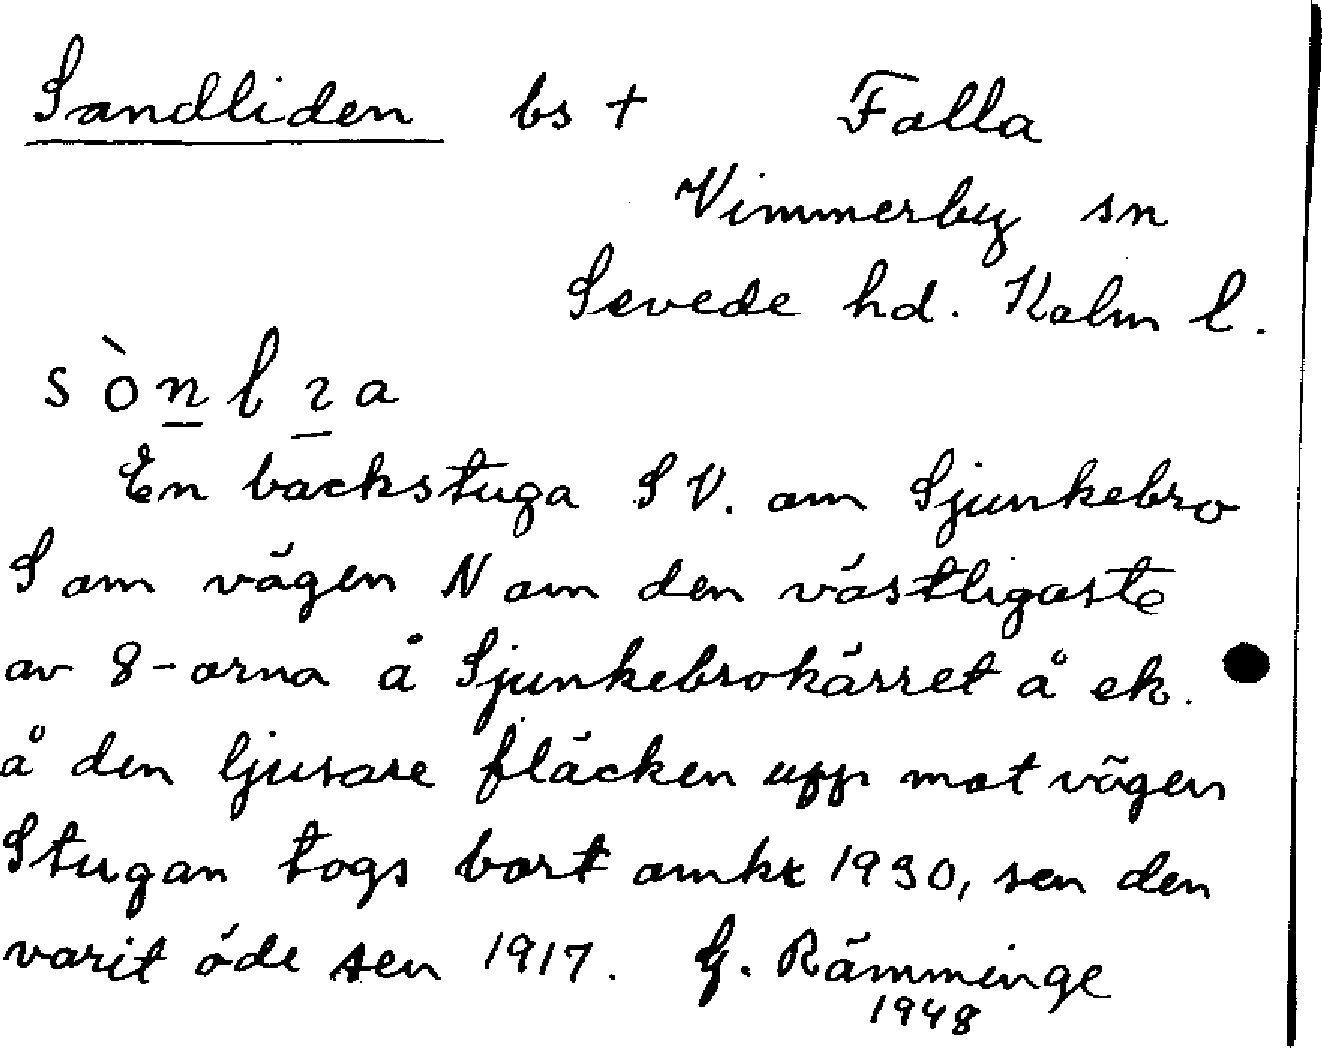 Sandliden bs † Falla
Vimmerby sn
Sevede hd. Kalm l.
sònlɩa
En backstuga SV. om Sjunkebro
S om vägen N om den västligaste
av 8-orna å Sjunkebrokärret å ek.
å den ljusare fläcken upp mot vägen
Stugan togs bort omkr 1930, sen den
varit öde sen 1917. G. Rämminge
1948